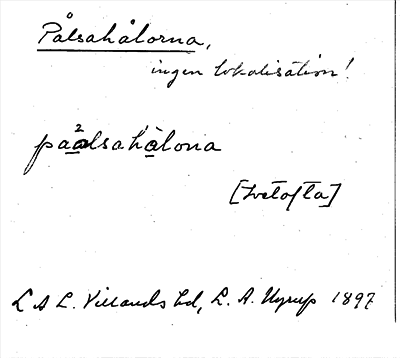 Pålsahålorna,
ingen lokalisation!
paalsahålona
[Ivetofta]
L A L. Villands hd, L. A. Nyrup 1897